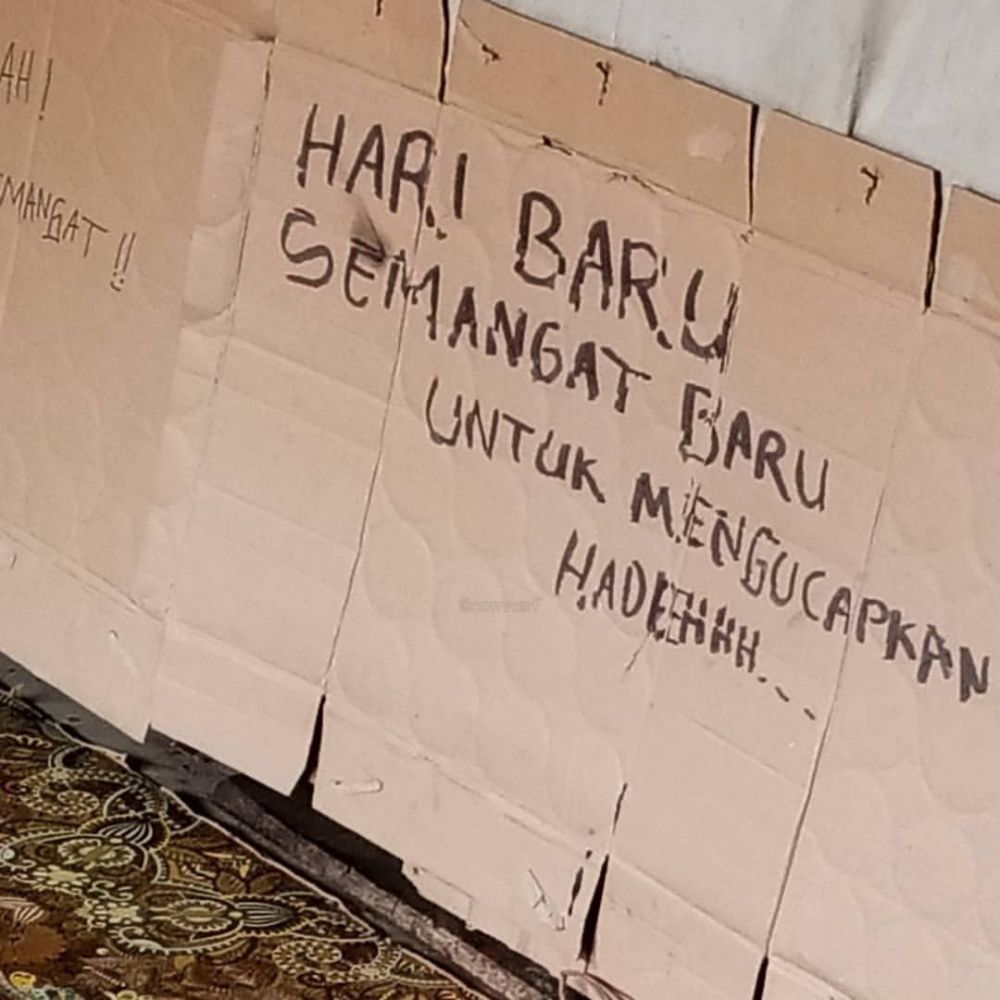 AH!
EMANGAT!!
HARI BARU
SEMANGAT BARU
UNTUK MENGUCAPKAN
HADEEHHH...